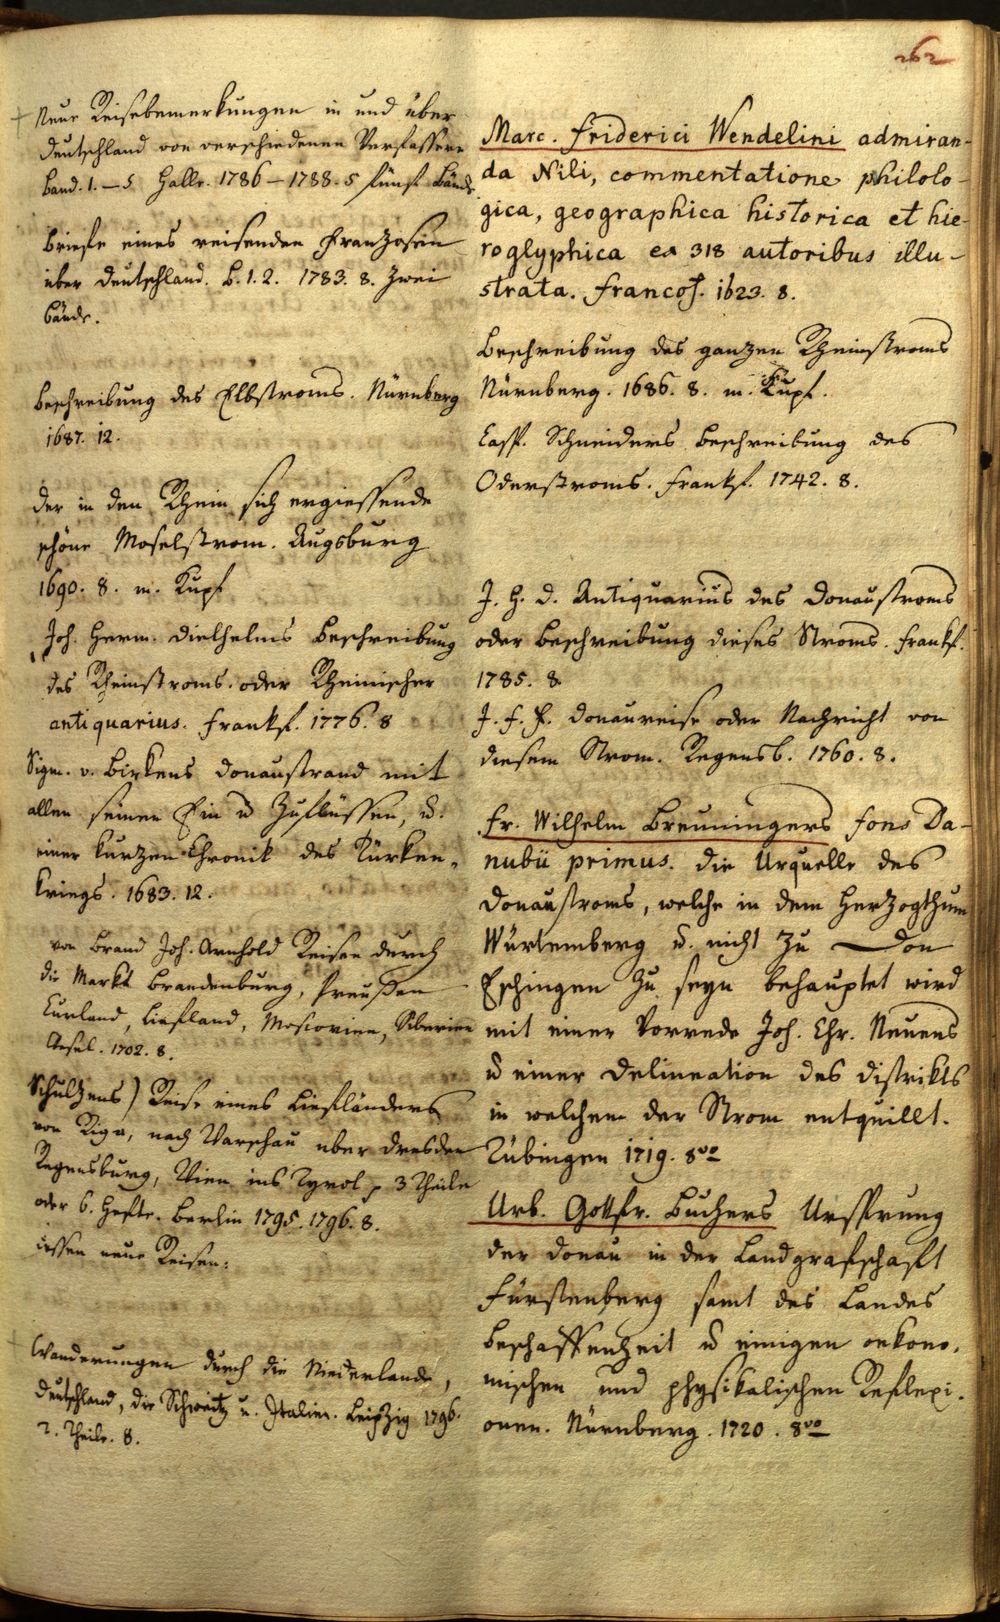 262
+ Neue Reisebemerkungen in und über
Deutschland von verschiedenen Verfassern
Band. 1. – 5 Halle. 1786 – 1788. 5 fünf Bände
Briefe eines reisenden Franzosen
über Deutschland. B. 1. 2. 1783. 8. zwei
Bände.
Beschreibung des Elbstroms. Nürnberg
1687. 12.
der in den Rhein sich ergiessende
schöne Moselstrom. Augsburg
1690. 8. m. Kupf
Joh. Herm. Dielhelms Beschreibung
des Rheinstroms oder Rheinischer
antiquarius. Frankf. 1776. 8
Sigm. v. Birkens Donaustrand mit
allen seinen Ein u Zuflüssen, u.
einer kurtzen Chronik des Türken-
kriegs. 1683. 12.
von Brand Joh. Arnhold Reisen durch
die Markt Brandenburg, Preußen
Curland, Liefland, Moscovien, Siberien
Wesel. 1702. 8.
Schultzens) Reise eines Liefländers
von Riga, nach Warschau uber Dresden
Regensburg, Wien ins Tyrol 3 Theile
oder 6. Hefte. Berlin 1795. 1796. 8.
dessen neue Reisen.
+ Wanderungen durch die Niederlande,
Deutschland, die Schweitz u. Italien. Leipzig 1796.
2. Theile. 8.
Marc. Friderici Wendelini admiran-
da Nili, commentatione philolo-
gica, geographica historica et hie-
roglyphica ex 318 autoribus illu-
strata. Francof. 1623. 8.
Beschreibung des gantzen Rheinstroms
Nürnberg. 1686. 8. m. Kupf.
Casp. Schneiders Beschreibung des
Oderstroms. Frankf. 1742. 8.
J. H. D. Antiquarius des Donaustroms
oder Beschreibung dieses Stroms. Frankf.
1785. 8.
J. F. E. Donaureise oder Nachricht von
diesem Strom. Regensb. 1760. 8.
Fr. Wilhelm Breuningers fons Da-
nubii primus. die Urquelle des
Donaustroms, welche in dem Herzogthum
Würtemberg u. nicht zu Don
Eschingen zu seyn behauptet wird
mit einer Vorrede Joh. Chr. Neuens
u einer Delineation des Distrikts
in welchem der Strom entquillt.
Tübingen 1719. 8vo
Urb. Gottfr. Buchers Ursprung
der Donau in der Landgrafschaft
Fürstenberg samt des Landes
Beschaffenheit u einigen oekono-
mischen und physikalischen Reflexi-
onen. Nürnberg. 1720. 8vo